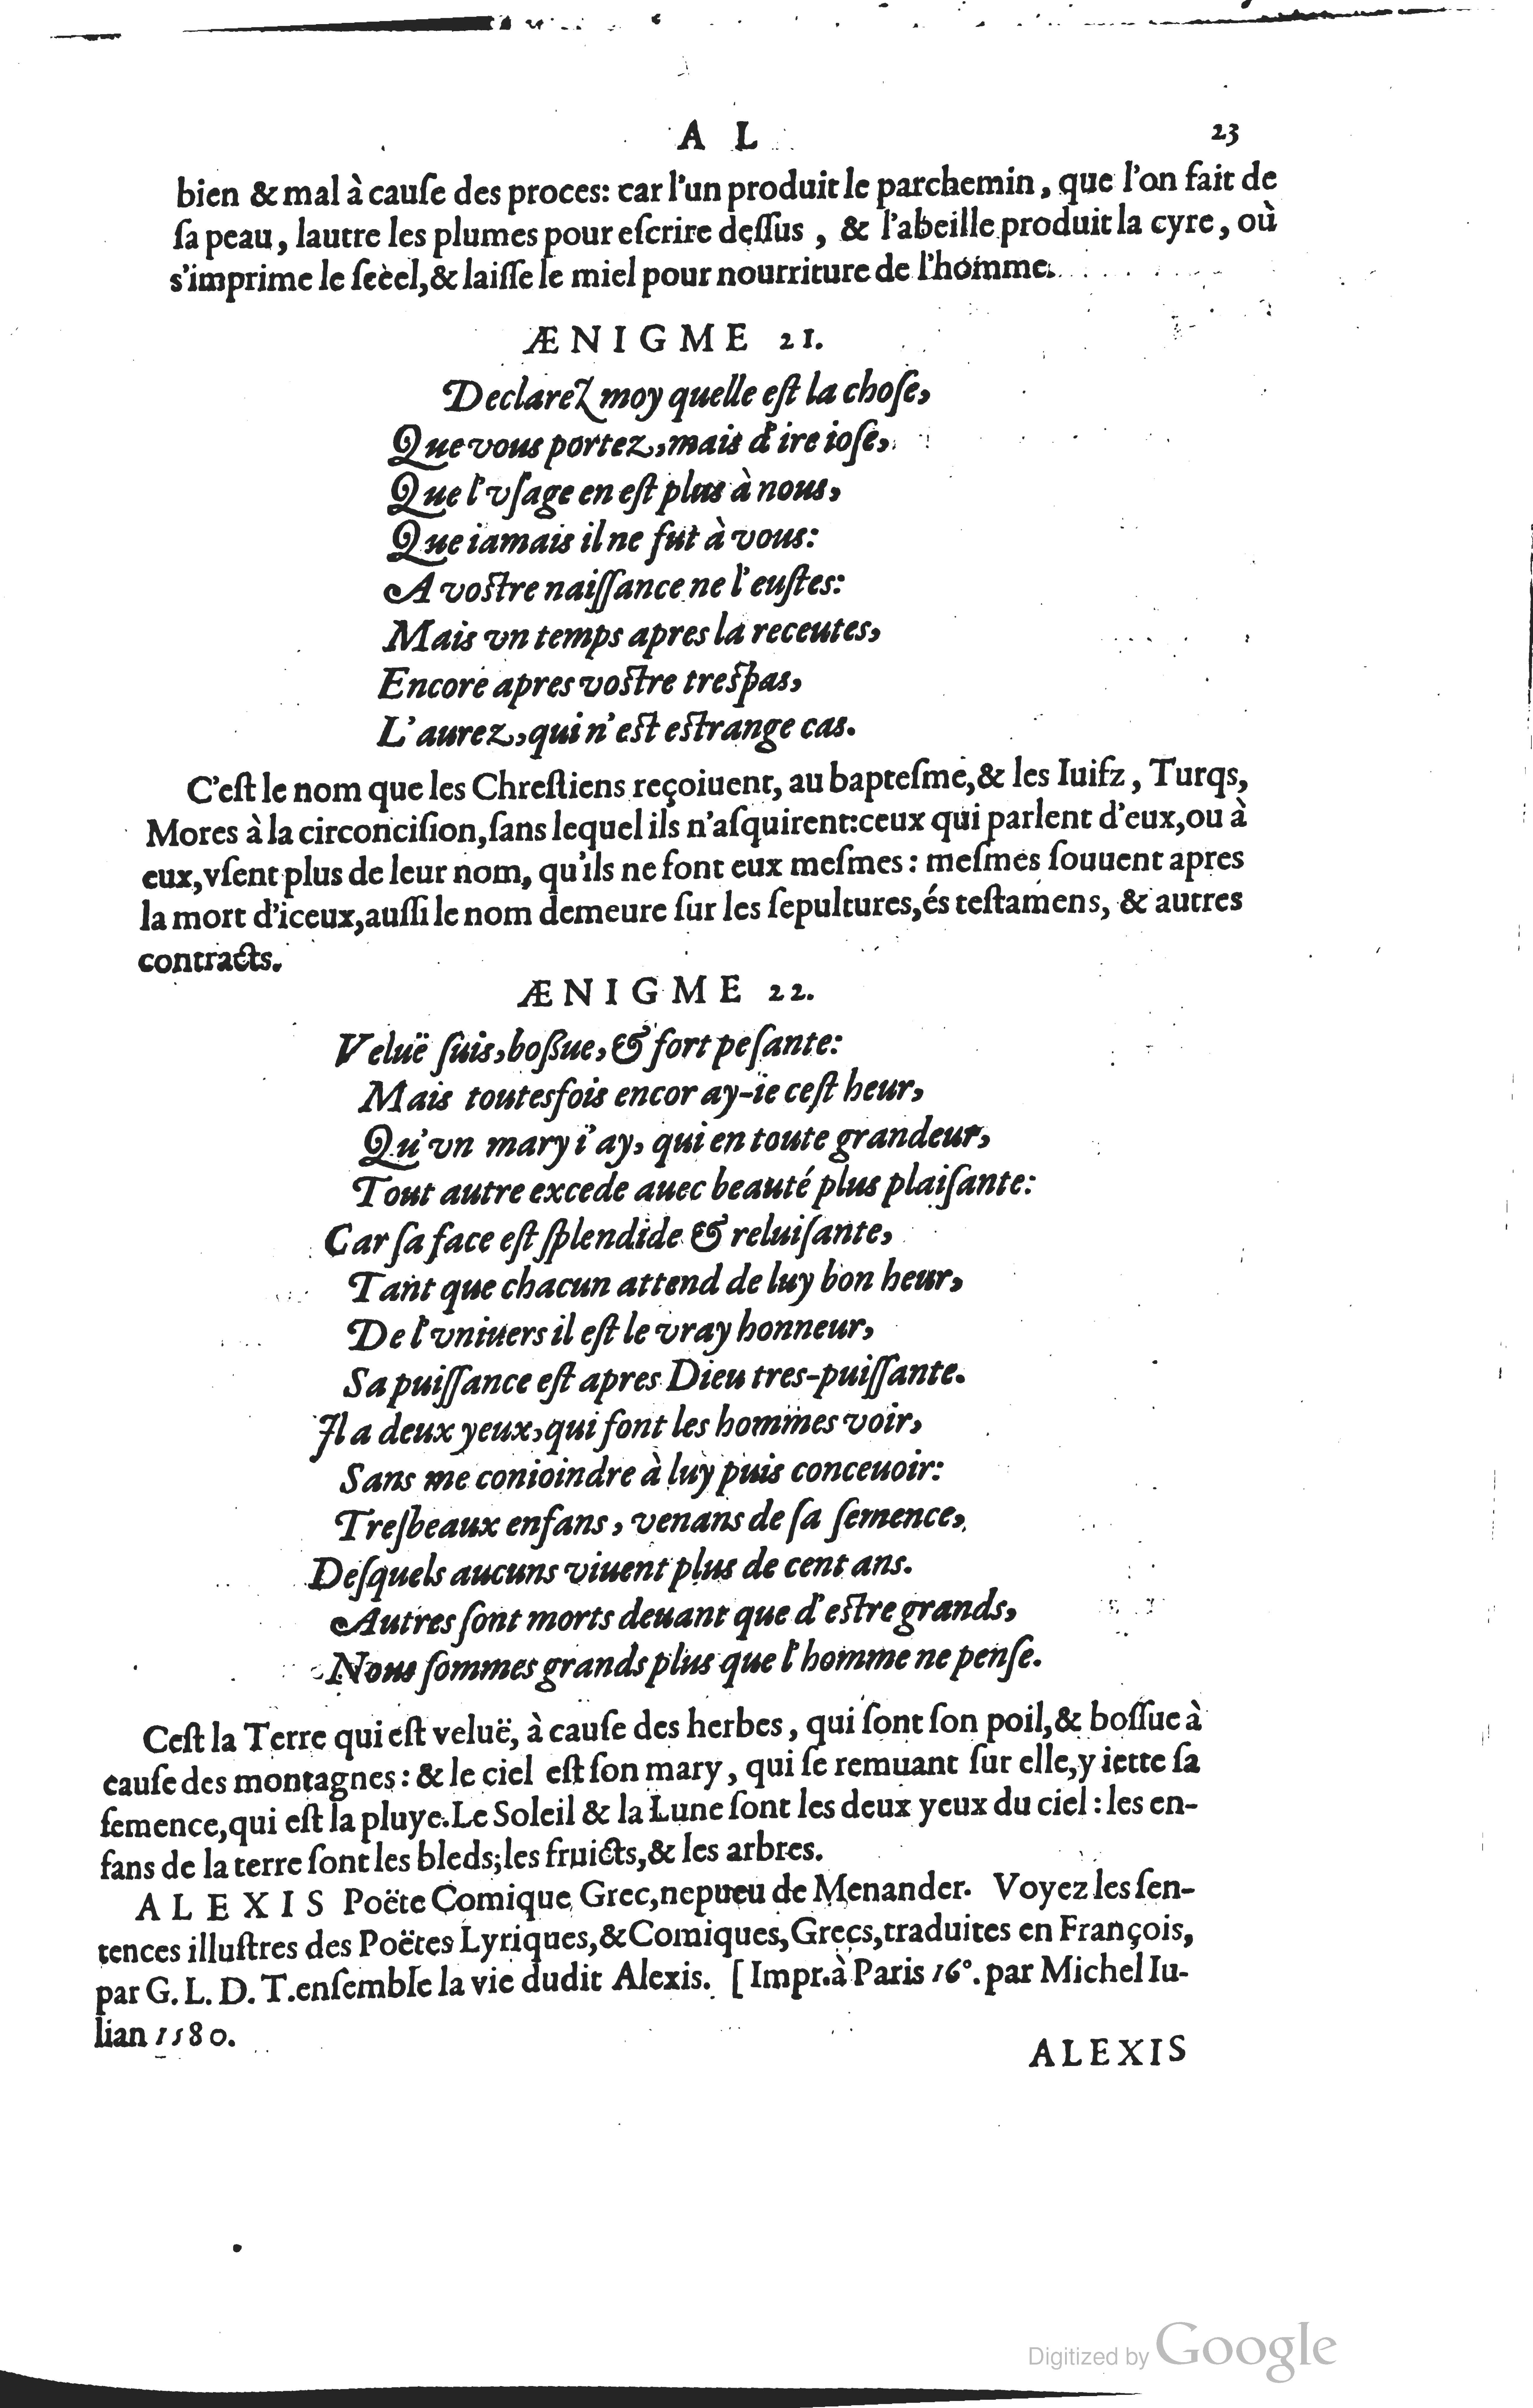 A L 23
bien & mal à cauſe des proces: car l'un produit le parchemin, que l'on fait de
ſa peau, lautre les plumes pour eſcrire deſſus, & l'abeille produit la cyre, où
s'imprime le ſeèel, & laiſſe le miel pour nourriture de l'homme.
ÆNIGME 21.
Declarez moy quelle eſt la choſe,
Que vous portez, mais d'ire ioſe,
Que l'vſage en eſt plus à nous,
Que iamais il ne fut à vous:
A voſtre naiſſance ne l'euſtes:
Mais vn temps apres la receutes,
Encore apres voſtre treſpas,
L'aurez, qui n'eſt eſtrange cas.
C'eſt le nom que les Chreſtiens reçoiuent, au bapteſme, & les Iuifz, Turqs,
Mores à la circonciſion, ſans lequel ils n'aſquirent: ceux qui parlent d'eux, ou à
eux, vſent plus de leur nom, qu'ils ne font eux meſmes: meſmes ſouuent apres
la mort d'iceux, auſſi le nom demeure ſur les ſepultures, és teſtamens, & autres
contracts.
ÆNIGME 22.
Veluë ſuis, boſsue, & fort peſante:
Mais toutesfois encor ay-ie ceſt heur,
Qu'vn mary i'ay, qui en toute grandeur,
Tout autre excede auec beauté plus plaiſante:
Car ſa face eſt ſplendide & reluiſante,
Tant que chacun attend de luy bon heur,
De l'vniuers il eſt le vray honneur,
Sa puiſſance eſt apres Dieu tres-puiſſante.
Il a deux yeux, qui font les hommes voir,
Sans me conioindre à luy puis conceuoir:
Treſbeaux enfans, venans de ſa ſemence,
Deſquels aucuns viuent plus de cent ans.
Autres ſont morts deuant que d'eſtre grands,
Nous ſommes grands plus que l'homme ne penſe.
Ceſt la Terre qui eſt veluë, à cauſe des herbes, qui ſont ſon poil, & boſſue à
cauſe des montagnes: & le ciel eſt ſon mary, qui ſe remuant ſur elle, y iette ſa
ſemence, qui eſt la pluye. Le Soleil & la Lune ſont les deux yeux du ciel: les en-
fans de la terre ſont les bleds; les fruicts, & les arbres.
ALEXIS Poëte Comique Grec, nepueu de Menander. Voyez les ſen-
tences illuſtres des Poëtes Lyriques, & Comiques, Grecs, traduites en François,
par G. L. D. T. enſemble la vie dudit Alexis. [Impr. à Paris 16°. par Michel Iu-
lian 1580.
ALEXIS
Digitized by Google